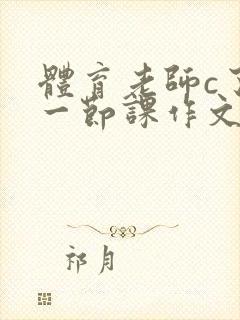 體育老師c
一節課作文
祁月